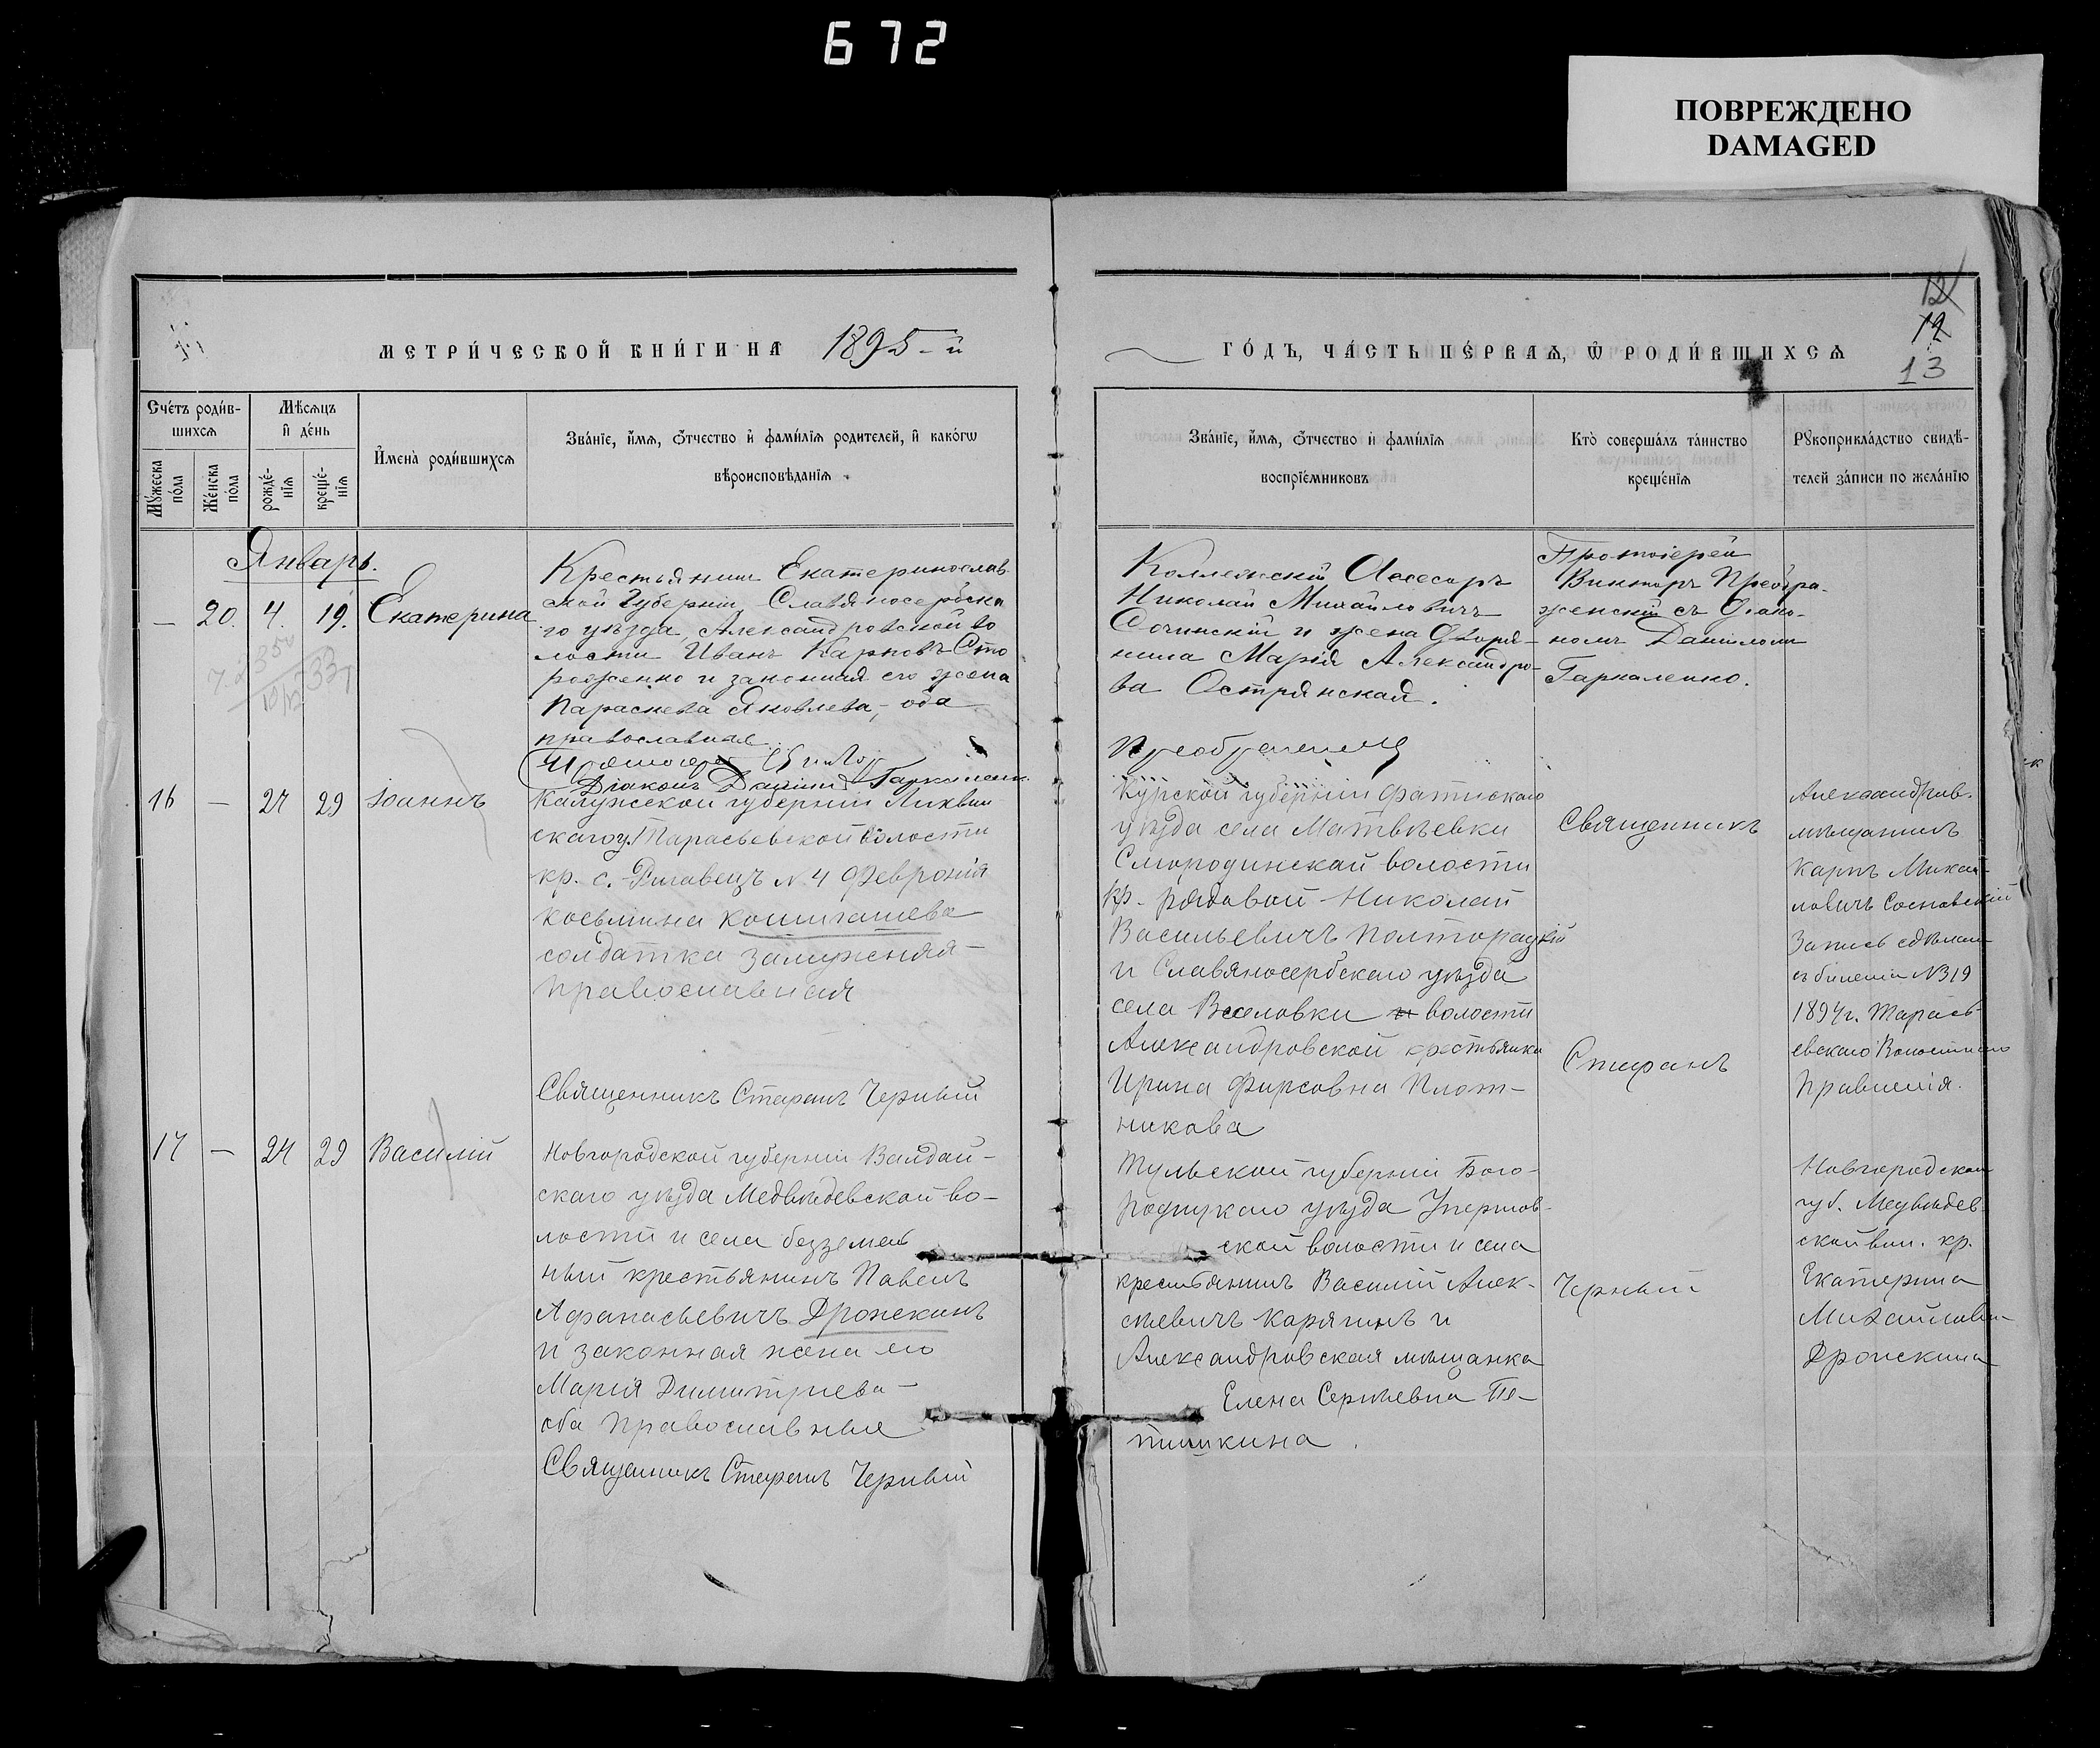 672
ПОВРЕЖДЕНО
DAMAGED
МЕТРИ́ЧЕСКОЙ КНИ́ГИ НА 1895-й
ГО́ДЪ, ЧА́СТЬ ПЕ́РВАѦ, Ѡ҆ РОДИ́ВШИХСѦ
12
12
13
Сче́тъ роди́в-
шихсѧ
Мѣ́сѧцъ
и҆ де́нь
Мꙋ́жеска
по́ла
Же́нска
по́ла
рожде́-
нїѧ
креще́-
нїѧ
И҆мена̀ роди́вшихсѧ
Зва́нїе, и҆́мѧ, ѻ҆́тчество и҆ фами́лїѧ родителей, и҆ како́гѡ
вѣроисповѣ́данїѧ
Зва́нїе, и҆́мѧ, ѻ҆́тчество и҆ фами́лїѧ
воспрїе́мниковъ
Кто̀ соверша́лъ та́инство
креще́нїѧ
Рꙋкоприкла́дство свидѣ́-
телей за́писи по жела́нїю
Январь.
— 20. 4. 19. Екатерина
Крестьянинъ Екатеринослав-
ской Губерніи, Славяносербска
го уѣзда, Александровской во
лости Иванъ Карповъ Сто
роженко и законная его жена
Параскева Яковлева, оба
православные
Діаконъ Даніилъ Гаркаленко
Коллежскій Ассесоръ
Николай Михайловичъ
Сочинскій и жена Дворя-
нина Марія Александро-
ва Острянская.
Преображенскій
Протоіерей
Викторъ Преобра-
женскій съ Діако-
номъ Даніиломъ
Гаркаленко.
16 — 27 29 Іоаннъ
Калужской губерніи Лихвин
скаго у. Тарасьевской волости
кр. с. N 4 Февронія
Косьмина Кошигашева
солдатка замужняя
православная
Священникъ Стефанъ Черный
Курской губерніи Фатискаго
уѣзда села Матвѣевки
Смородинской волости
кр. рядовой Николай
Васильевичъ Полторацкій
и Славяносербскаго уѣзда
села Веселовки волости
Александровской крестьянка
Ирина Фирсовна Плот-
никова
Священникъ
Стефанъ
Черный
Александров.
мѣщанинъ
Карпъ Михай-
ловичъ Сосновскій
Запись сдѣлана
съ билета N319
1894 г. Тарась-
евскаго Волостнаго
Правленія.
17 — 24 29 Василій
Новгородской губерніи Валдай-
скаго уѣзда Медвѣдевской во-
лости и села безземель
ный крестьянинъ Павелъ
Афанасьевичъ Дронскинъ
и законная жена его
Марія Димитріева
оба православные
Священникъ Стефанъ Черный
Тульской губерніи Бого-
родицкаго уѣзда
ской волости и села
крестьянинъ Василій Алек-
сѣевичъ Карягинъ и
Александровская мѣщанка
Елена Сергѣевна Пе-
тишкина.
Новгородской
губ. Медвѣдев
ской вол. кр.
Екатерина
Михайловна
Дронскина